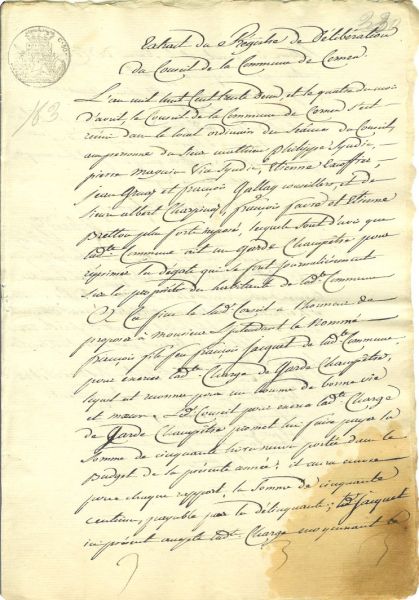 Extrait du Registre de Délibération
du Conseil de la Commune de
L'an mil huit Cent trente deux, et le quatre du mois
d'avril, le Conseil de la Commune de s'est
réuni dans le local ordinaire des Séances du Conseil,
en personne du Sieur Philippe Syndic,
pierre Vice Syndic, Etienne
jean et françois Gallay conseillers, et de
Sieur albert françois favre et Etienne
plus forts imposés, lesquels sont d'avis que
lad.te Commune ait un garde Champêtre pour
réprimer les dégats qui se font journellement
sur les propriétés des habitants de lad.te Commune
A Ces fins le Sud.t Conseil a l'honneur de
proposer à monsieur l'Intendant le Nommé
françois fils feu françois jacquet de lad.te Commune
pour exercer lad.te Charge de Garde Champêtre,
lequel est reconnu pour un homme de bonne vie
et mœurs. Led.t Conseil pour exercer lad.te Charge
de Garde Champêtre promet lui faire payer la
Somme de cinquante livres neuves portée dans le
Budget de la présente année; et aura encore
pour chaque rapport, la Somme de cinquante
centimes, payable par les délinquants; led.t jacquet
ici présent accepte lad.te Charge moyennant
163